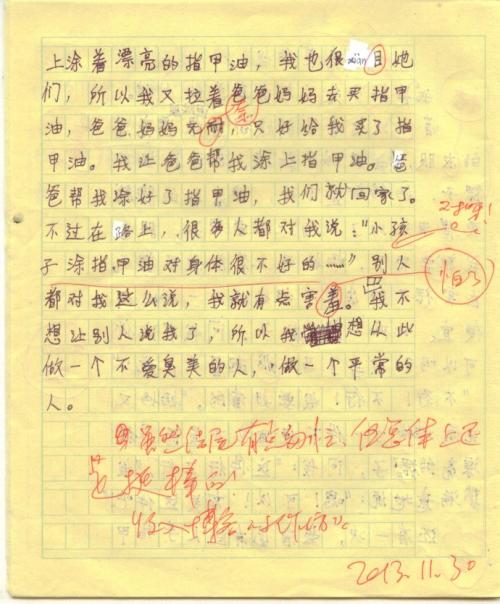 上涂着漂亮的指甲油，我也很xiàn目她
们，所以我又拉着爸爸妈妈去买指甲
奈
油，爸爸妈妈无耐，只好给我买了指
甲油。我让爸爸帮我涂上指甲油。爸
爸帮我涂好了指甲油，我们就回家了。
不过在路上，很多人都对我说："小孩
子涂指甲油对身体很不好的……"别人
怕了
都对我这么说，我就有点害羞。我不
想让别人说我了，所以我想从此
做一个不爱臭美的人，做一个平常的
人。
虽然结尾有点 但总体上还
是挺棒的
收入博客
2013.11.30